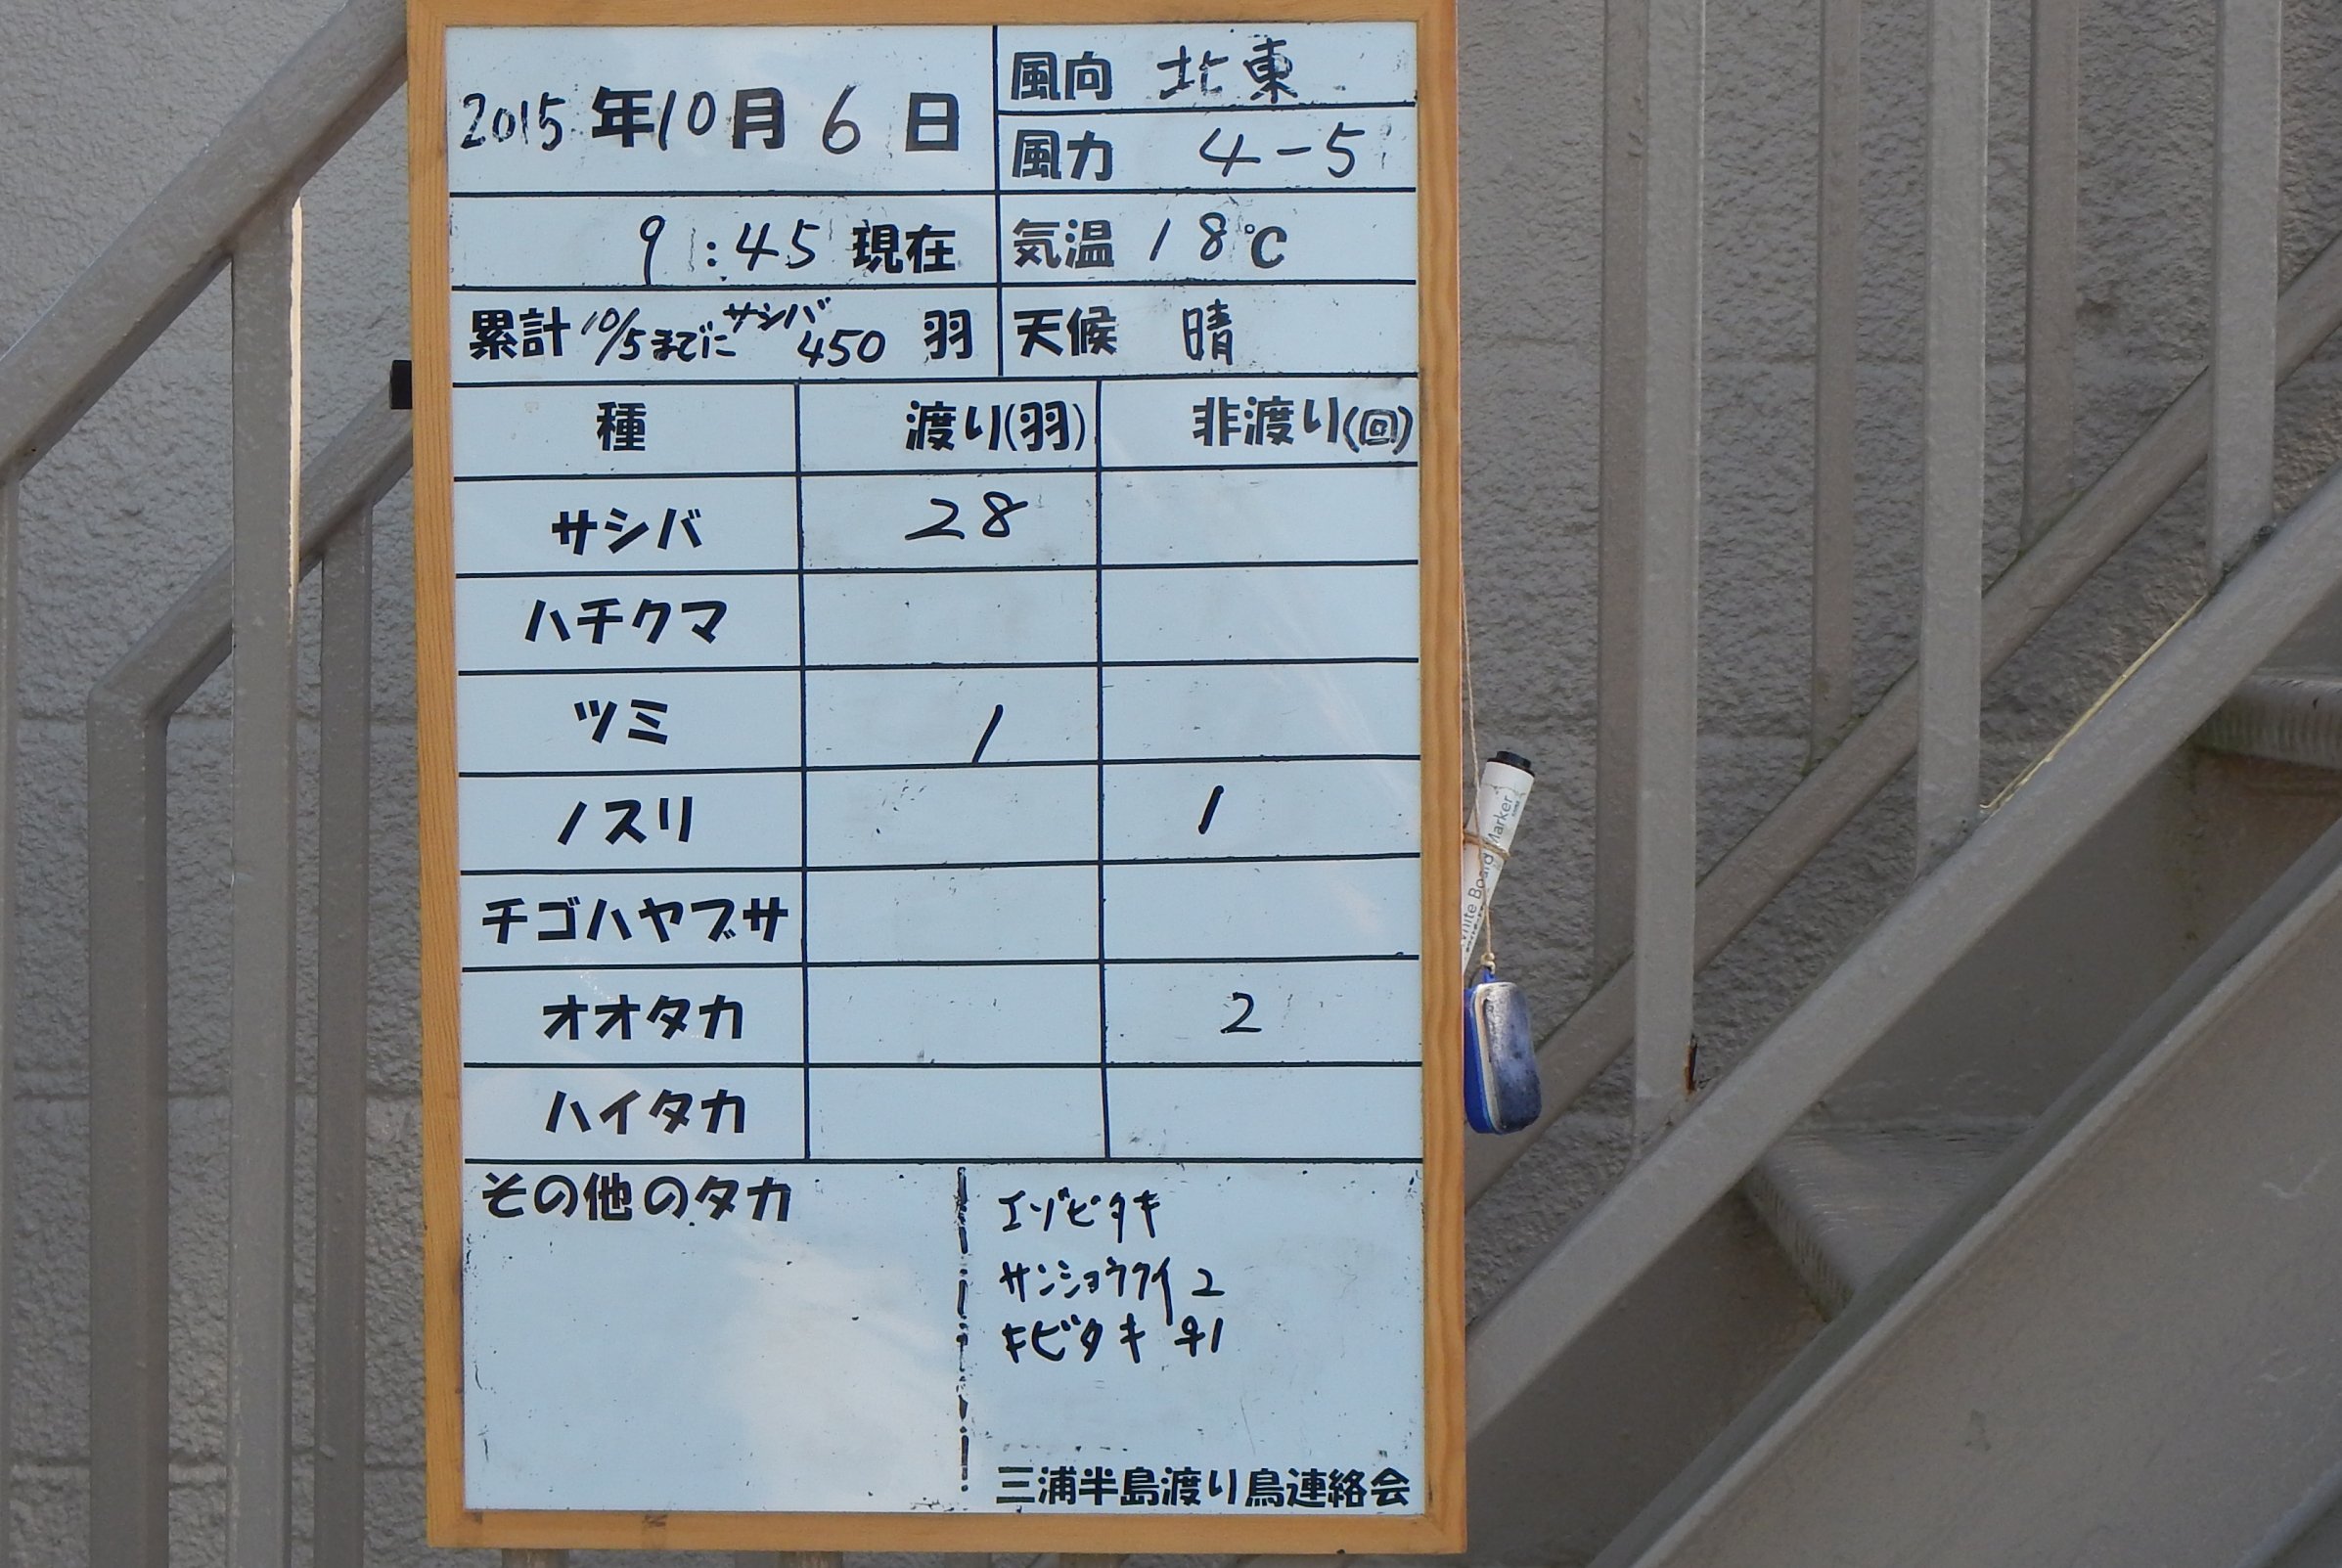 2015年10月6日
風向 北東
風力 4-5
9:45現在
気温 18℃
累計 10/5までに サシバ 450 羽
天候 晴
種 渡り(羽) 非渡り(回)
サシバ 28
ハチクマ
ツミ 1
ノスリ 1
チゴハヤブサ
オオタカ 2
ハイタカ
その他のタカ
エゾビタキ
サンショウクイ 2
キビタキ ♀1
三浦半島渡り鳥連絡会
White Board Marker